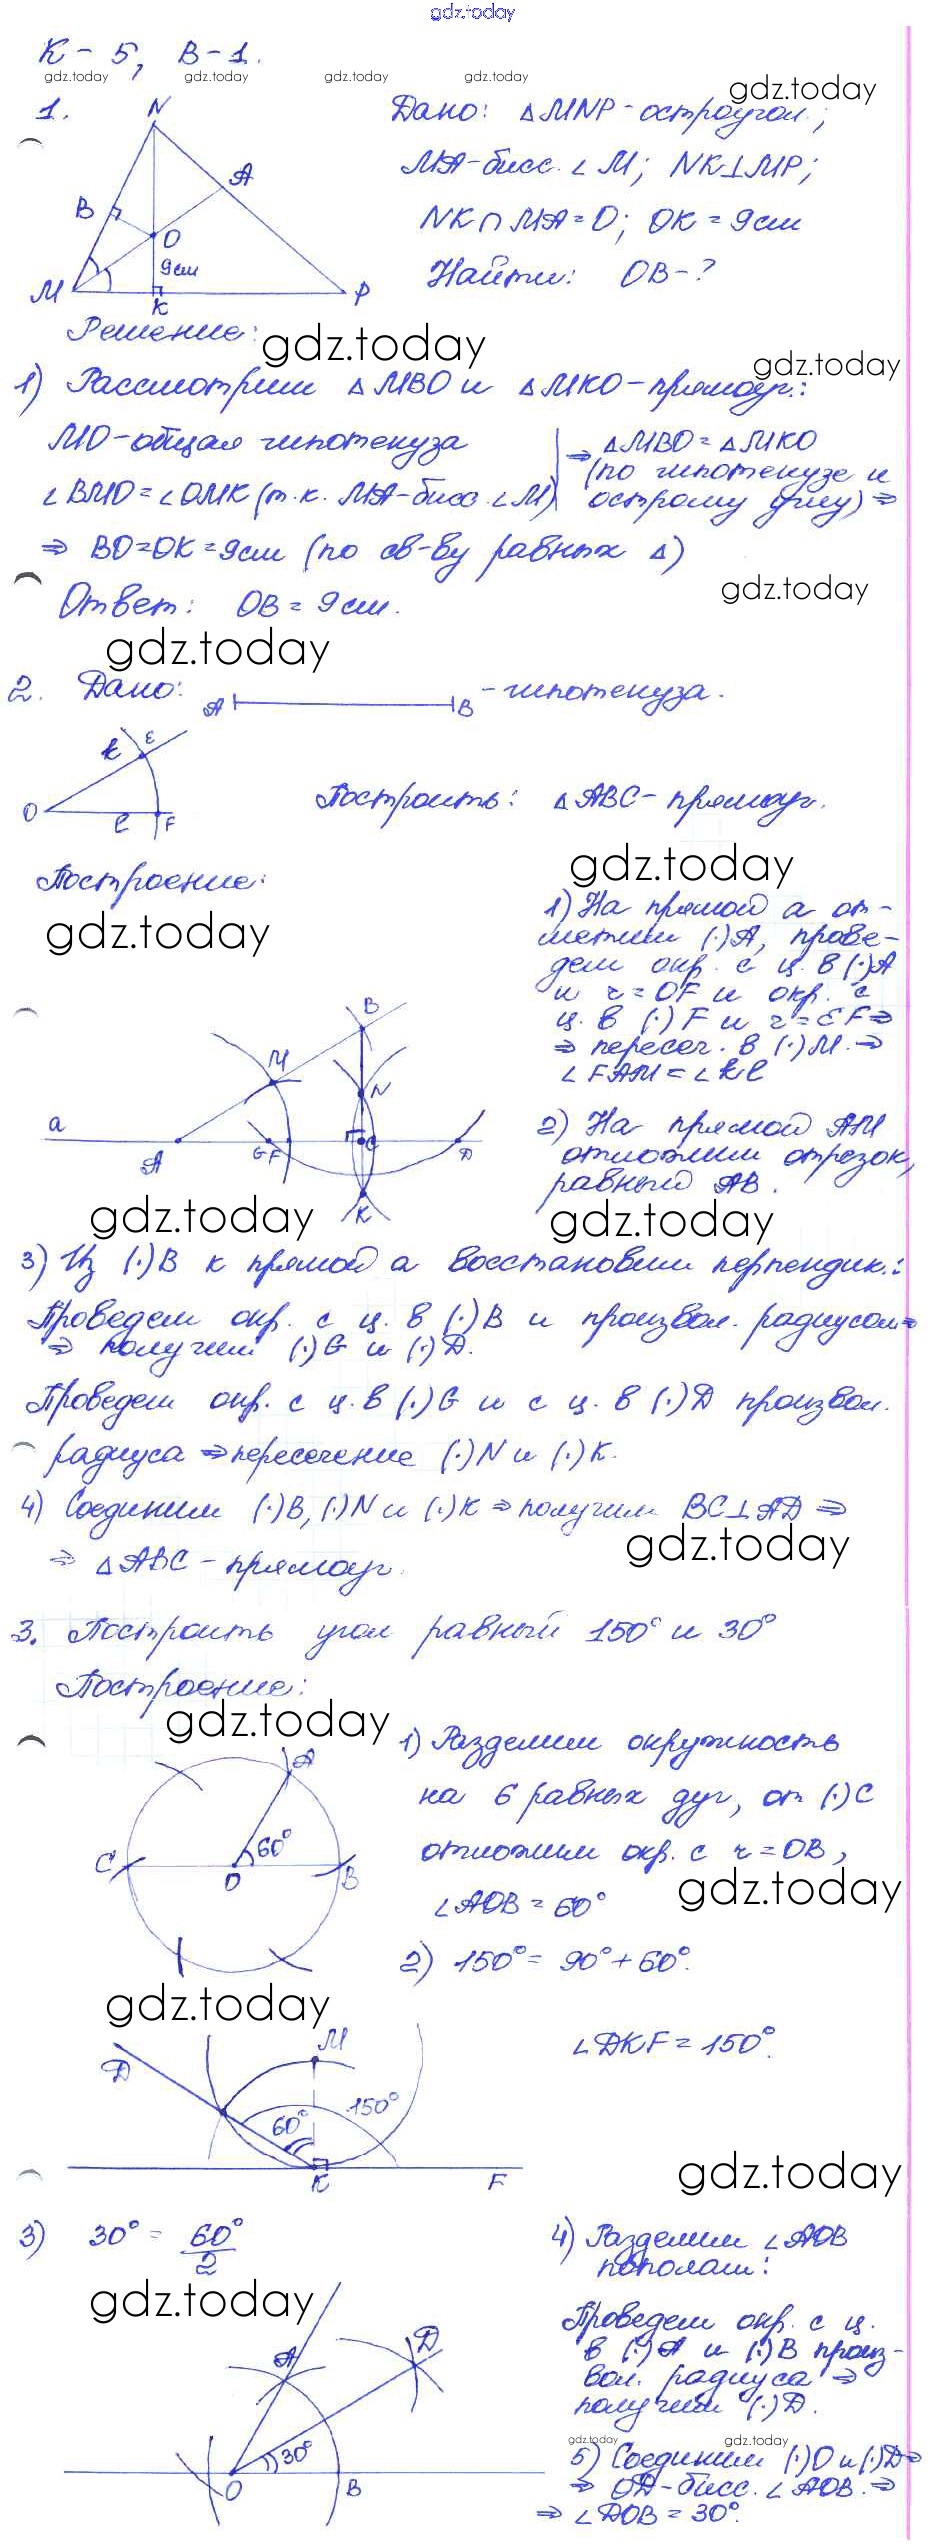 gdz.today
К-5, В-1.
gdz.today gdz.today gdz.today gdz.today
gdz.today
1.
N
A
B
O
9см
M
K
P
Дано: △MNP-остроугол.;
MA-бисс. ∠M; NK⊥MP;
NK∩MA=O; OK=9см
Найти: OB-?
Решение:
gdz.today
gdz.today
1) Рассмотрим △MBO и △MKO-прямоуг.:
MO-общая гипотенуза
∠BMO=∠OMK (т.к. MA-бисс. ∠M)
⇒ △MBO=△MKO
(по гипотенузе и
острому углу) ⇒
⇒ BO=OK=9см (по св-ву равных △)
gdz.today
Ответ: OB=9см.
gdz.today
2. Дано: A B -гипотенуза.
k E
O
l F
Построить: △ABC-прямоуг.
gdz.today
Построение:
gdz.today
1) На прямой a от-
метим (·)A, прове-
дем окр. с ц. в (·)A
и r=OF и окр. с
ц. в (·)F и r=EF⇒
⇒ пересеч. в (·)M.⇒
∠FAM=∠kl
B
M
N
a
A
G F
C
D
K
2) На прямой AM
отложим отрезок,
равный AB.
gdz.today
gdz.today
3) Из (·)B к прямой a восстановим перпендик.:
Проведем окр. с ц. в (·)B и произвол. радиусом⇒
⇒ получим (·)G и (·)D.
Проведем окр. с ц. в (·)G и с ц. в (·)D произвол.
радиуса ⇒ пересечение (·)N и (·)K.
4) Соединим (·)B, (·)N и (·)K ⇒ получим BC⊥AD ⇒
gdz.today
⇒ △ABC-прямоуг.
3. Построить угол равный 150° и 30°
Построение:
gdz.today
A
C
60°
O
B
1) Разделим окружность
на 6 равных дуг, от (·)C
отложим окр. с r=OB,
gdz.today
∠AOB=60°
2) 150°=90°+60°.
gdz.today
M
D
60°
150°
K
F
∠DKF=150°.
gdz.today
3) 30°=60°/2
gdz.today
A
D
30°
O
B
4) Разделим ∠AOB
пополам:
Проведем окр. с ц.
в (·)A и (·)B произ-
вол. радиуса ⇒
получим (·)D.
gdz.today gdz.today
5) Соединим (·)O и (·)D⇒
⇒ OD-бисс. ∠AOB.⇒
⇒ ∠DOB=30°.